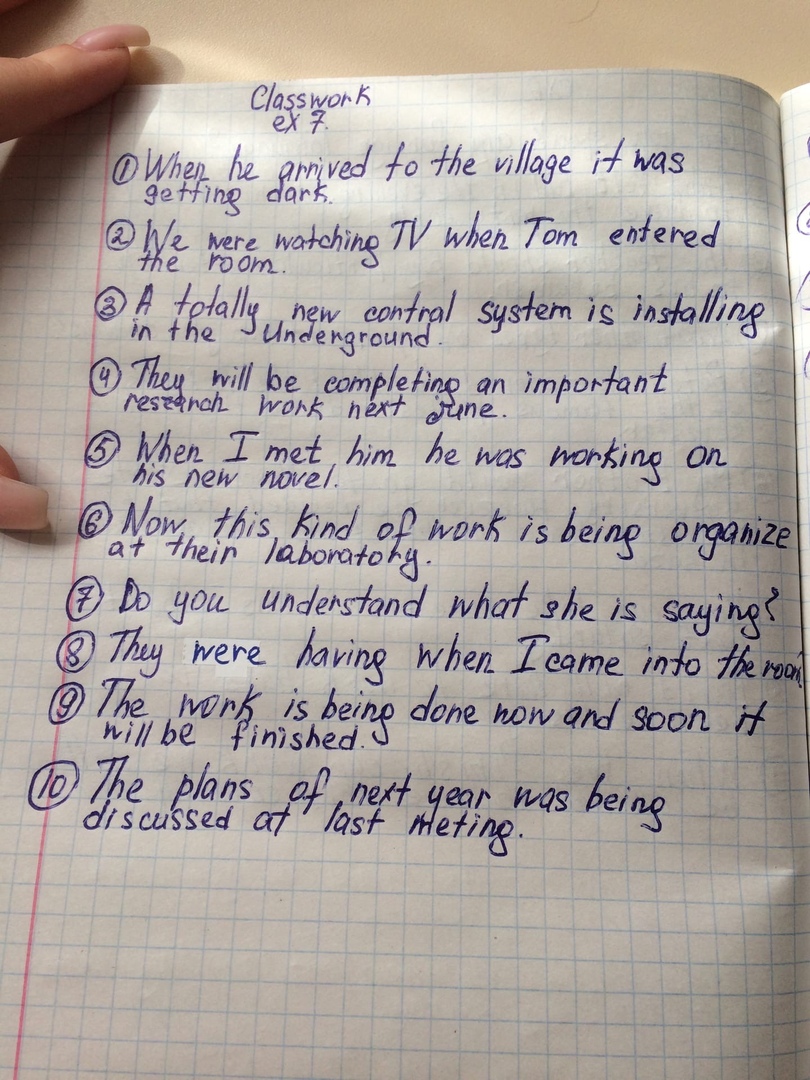 Classwork
ex 7.
① When he arrived to the village it was
getting dark.
② We were watching TV when Tom entered
the room.
③ A totally new contral system is installing
in the Underground.
④ They will be completing an important
research work next june.
⑤ When I met him he was working on
his new novel.
⑥ Now this kind of work is being organize
at their laboratory.
⑦ Do you understand what she is saying?
⑧ They were having when I came into the room
⑨ The work is being done now and soon it
will be finished.
⑩ The plans of next year was being
discussed at last meting.